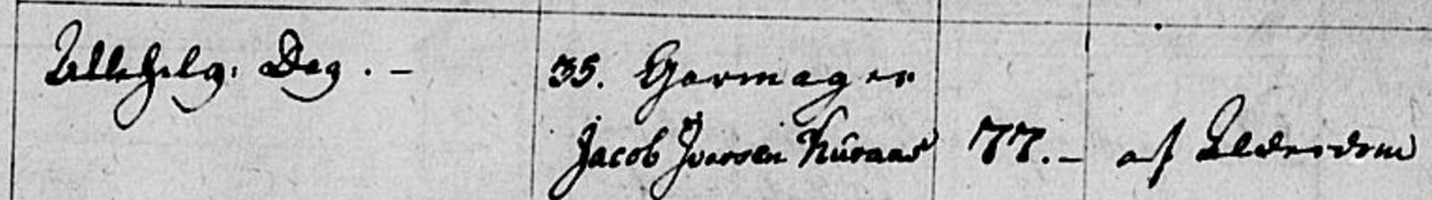 Allehelg: Dag. –
35. Garmager
Jacob Iversen Kuraas 77. – af Alderdom